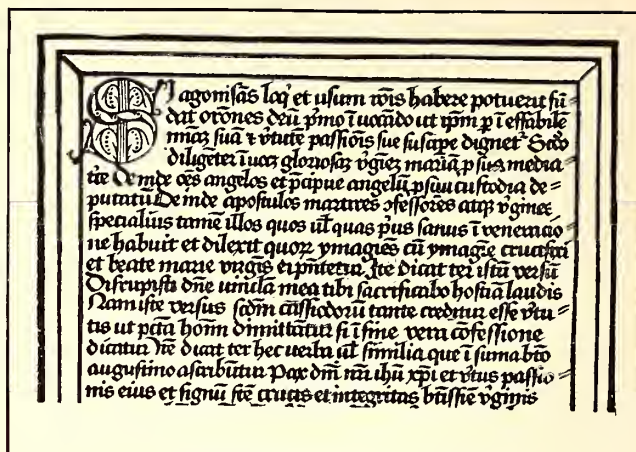 Si agonisãs loq̃ et usum rõis habere potuerit fũ⸗
dat orõnes deũ p̃mo ĩuocãdo ut ip̃m p ĩeffabilẽ
miã̃z suã ⁊ v̑tutẽ passiõis sue suscipe dignet᷑ Scđo
diligẽter ĩuocz gloriosaz v̑ginẽz mariã p̱ sua media⸗
tõe Deinde oẽs angelos et p̃cipue angelũ p̱ sui custodia de⸗
putatũ Deinde apostulos martires ɔfessores atqꝫ v̑gines
specialiꝰ tamẽ illos quos ul̃ quas p̱us sanus ĩ veneracio
ne habuit et dilexit quoꝝ ymagiẽs cũ ymagĩe crucifixi
et beate marie virgĩs ei p̃ntetur Itẽ dicat ter istũ versũ
Disrupisti dñe vincula mea tibi sacrificabo hostiã laudis
Nam iste versus scđm cassiodorũ tante creditur esse v̑tu⸗
tis ut pctã hoĩm dimittãtur si ĩ fine vera cõfessione
dicatur Itẽ dicat ter hec verba ul̃ similia que ĩ suma bt̃o
augustino ascribũtur Pax dñi nr̃i ihũ xp̃i et v̑tus passio⸗
nis eius et signũ sc̃te crucis et integritas bt̃issiẽ v̑ginis